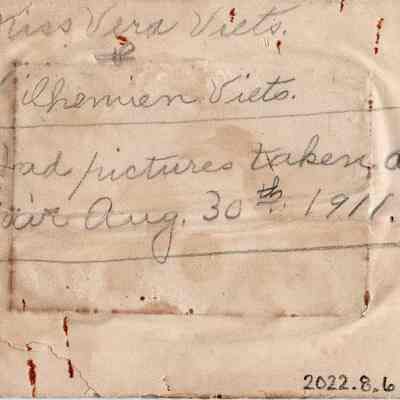 Miss Vera Viets.
&
Viets.
Had pictures taken a
air Aug. 30th. 1911.
2022.8.6